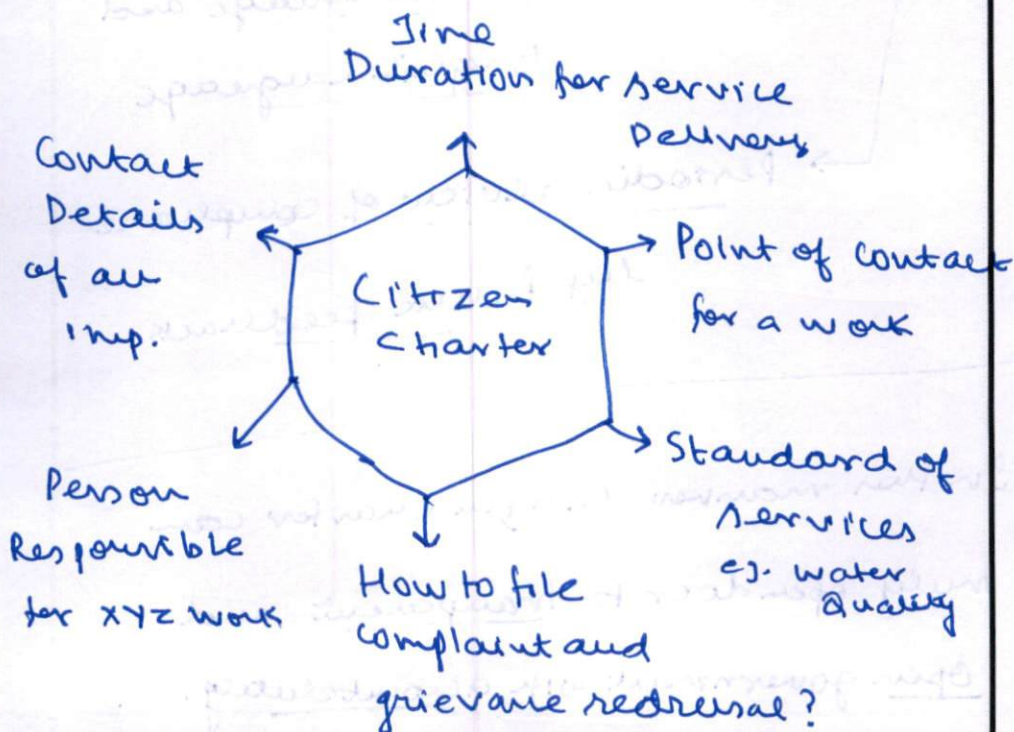 Time
Duration for service
Delivery
Contact
Details
of all
imp.
Citizen
Charter
Point of contact
for a work
Standard of
services
eg. water
Quality
Person
Responsible
for XYZ work
How to file
complaint and
grievance redressal?